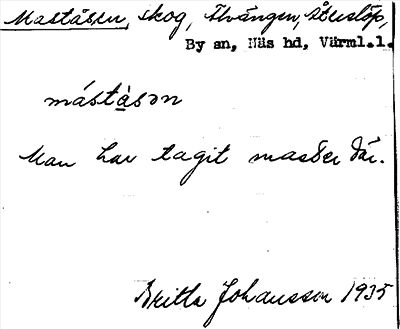 Maståsen, skog, Älvängen, Återslöp,
By sn, Näs hd, Värml.l.
mástà̀sən
Man har tagit master där.
Britta Johansson 1935